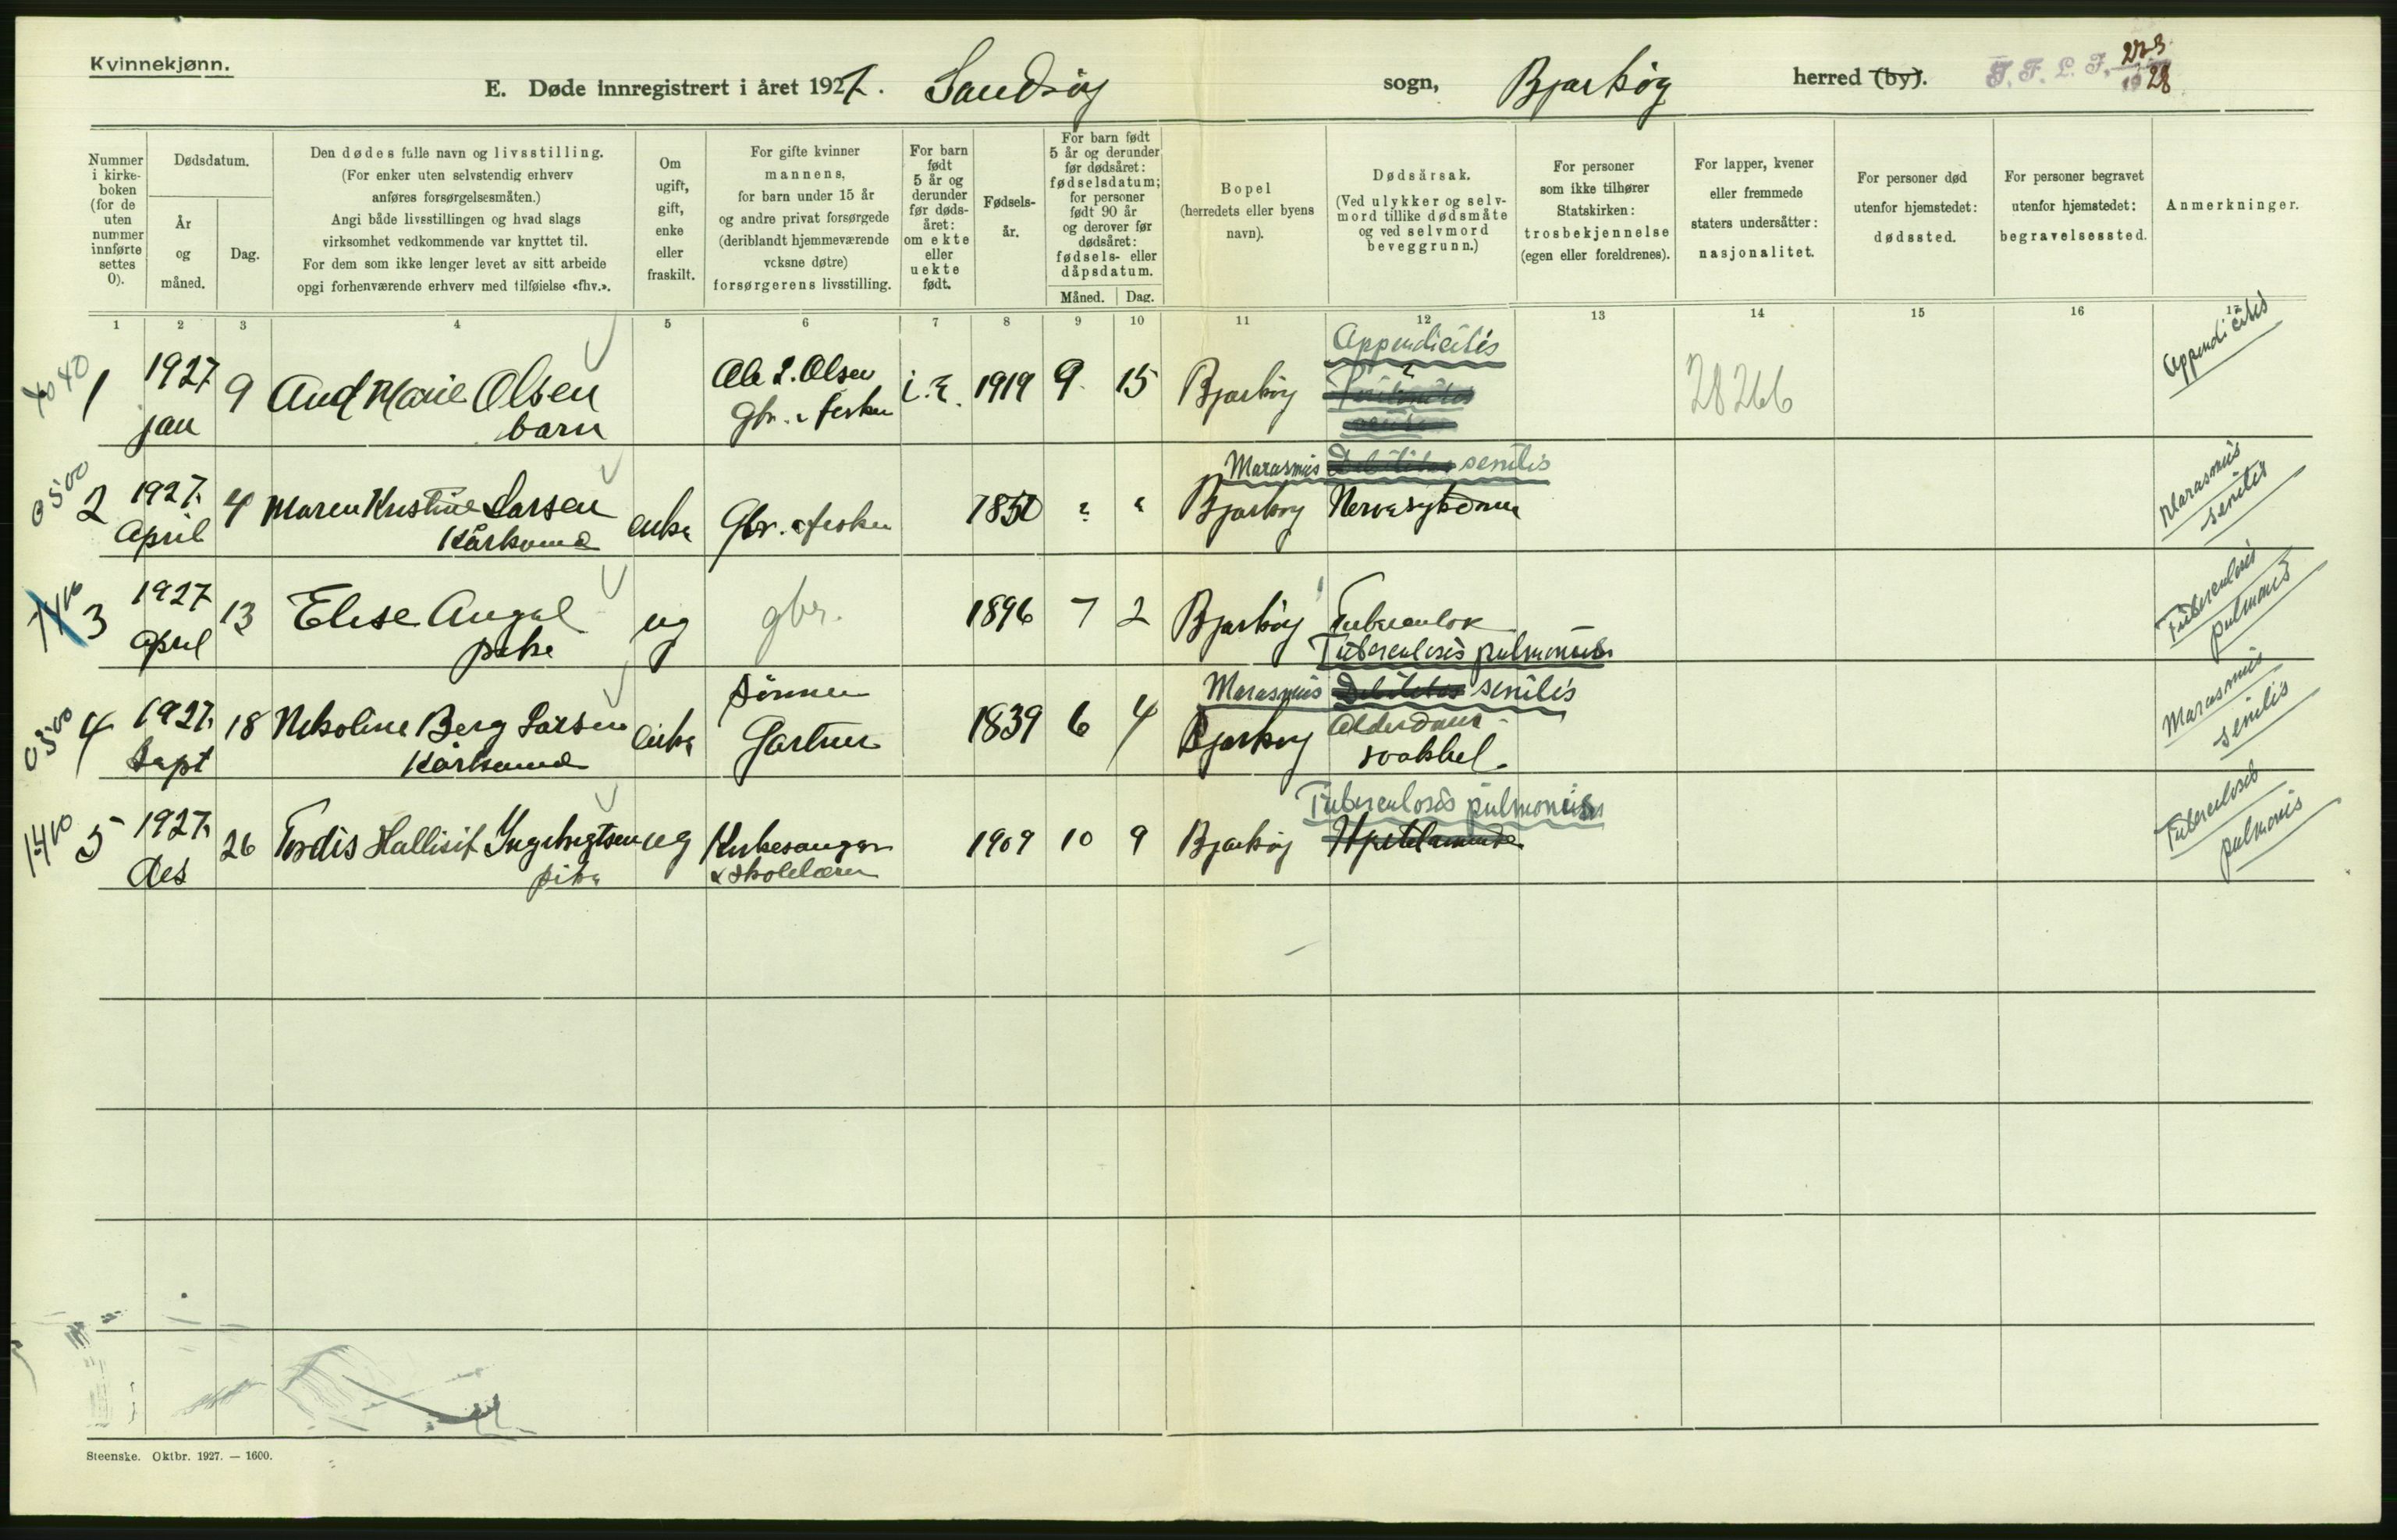 Kvinnekjønn.
E. Døde innregistrert i året 1927. Sandsøy sogn, Bjarkøy herred (by). T. F. L. F. 273 1928
Nummer i kirke-boken (for de uten nummer innførte settes 0).
Dødsdatum.
År og måned.
Dag.
Den dødes fulle navn og livsstilling.
(For enker uten selvstendig erhverv
anføres forsørgelsesmåten.)
Angi både livsstillingen og hvad slags
virksomhet vedkommende var knyttet til.
For dem som ikke lenger levet av sitt arbeide
opgi forhenværende erhverv med tilføielse «fhv.».
Om ugift, gift, enke eller fraskilt.
For gifte kvinner
mannens,
for barn under 15 år
og andre privat forsørgede
(deriblandt hjemmeværende
voksne døtre)
forsørgerens livsstilling.
For barn født 5 år og derunder før døds-året: om ekte eller uekte født.
Fødsels-år.
For barn født
5 år og derunder
før dødsåret:
fødselsdatum;
for personer
født 90 år
og derover før
dødsåret:
fødsels- eller
dåpsdatum.
Måned. Dag.
Bopel
(herredets eller byens
navn).
Dødsårsak.
(Ved ulykker og selv-
mord tillike dødsmåte
og ved selvmord
beveggrunn.)
For personer
som ikke tilhører
Statskirken:
trosbekjennelse
(egen eller foreldrenes).
For lapper, kvener
eller fremmede
staters undersåtter:
nasjonalitet.
For personer død
utenfor hjemstedet:
dødssted.
For personer begravet
utenfor hjemstedet:
begravelsessted.
Anmerkninger.
1 2 3 4 5 6 7 8 9 10 11 12 13 14 15 16 17
1 1927 jan 9 Aud Marie Olsen barn Olsen gbr. 1919 9 15 Bjarkøy Appendicitis 28266 Appendicitis
0500 2 1927. April 4 Maren Kristine Larsen Kårkona enke Gbr. & fisker 1850 Bjarkøy Marasmus Debilitas senilis Nervesykdom Marasmus senilis
3 1927 April 13 Elise Angel pike ug gbr. 1896 7 2 Bjarkøy Tuberculosis pulmonis Tuberculosis pulmonis
0500 4 1927. Sept 18 Nikoline Berg Larsen Kårkona enke Sønnen Gartner 1839 6 4 Bjarkøy Marasmus Debilitas senilis Alderdoms svakhet. Marasmus senilis
1410 5 1927. des 26 Tordis Hallisif Ingebrigtsen pike ug Kirkesanger & skolelærer 1909 10 9 Bjarkøy Tuberculosis pulmonis Tuberculosis pulmonis
Steenske. Oktbr. 1927. — 1600.